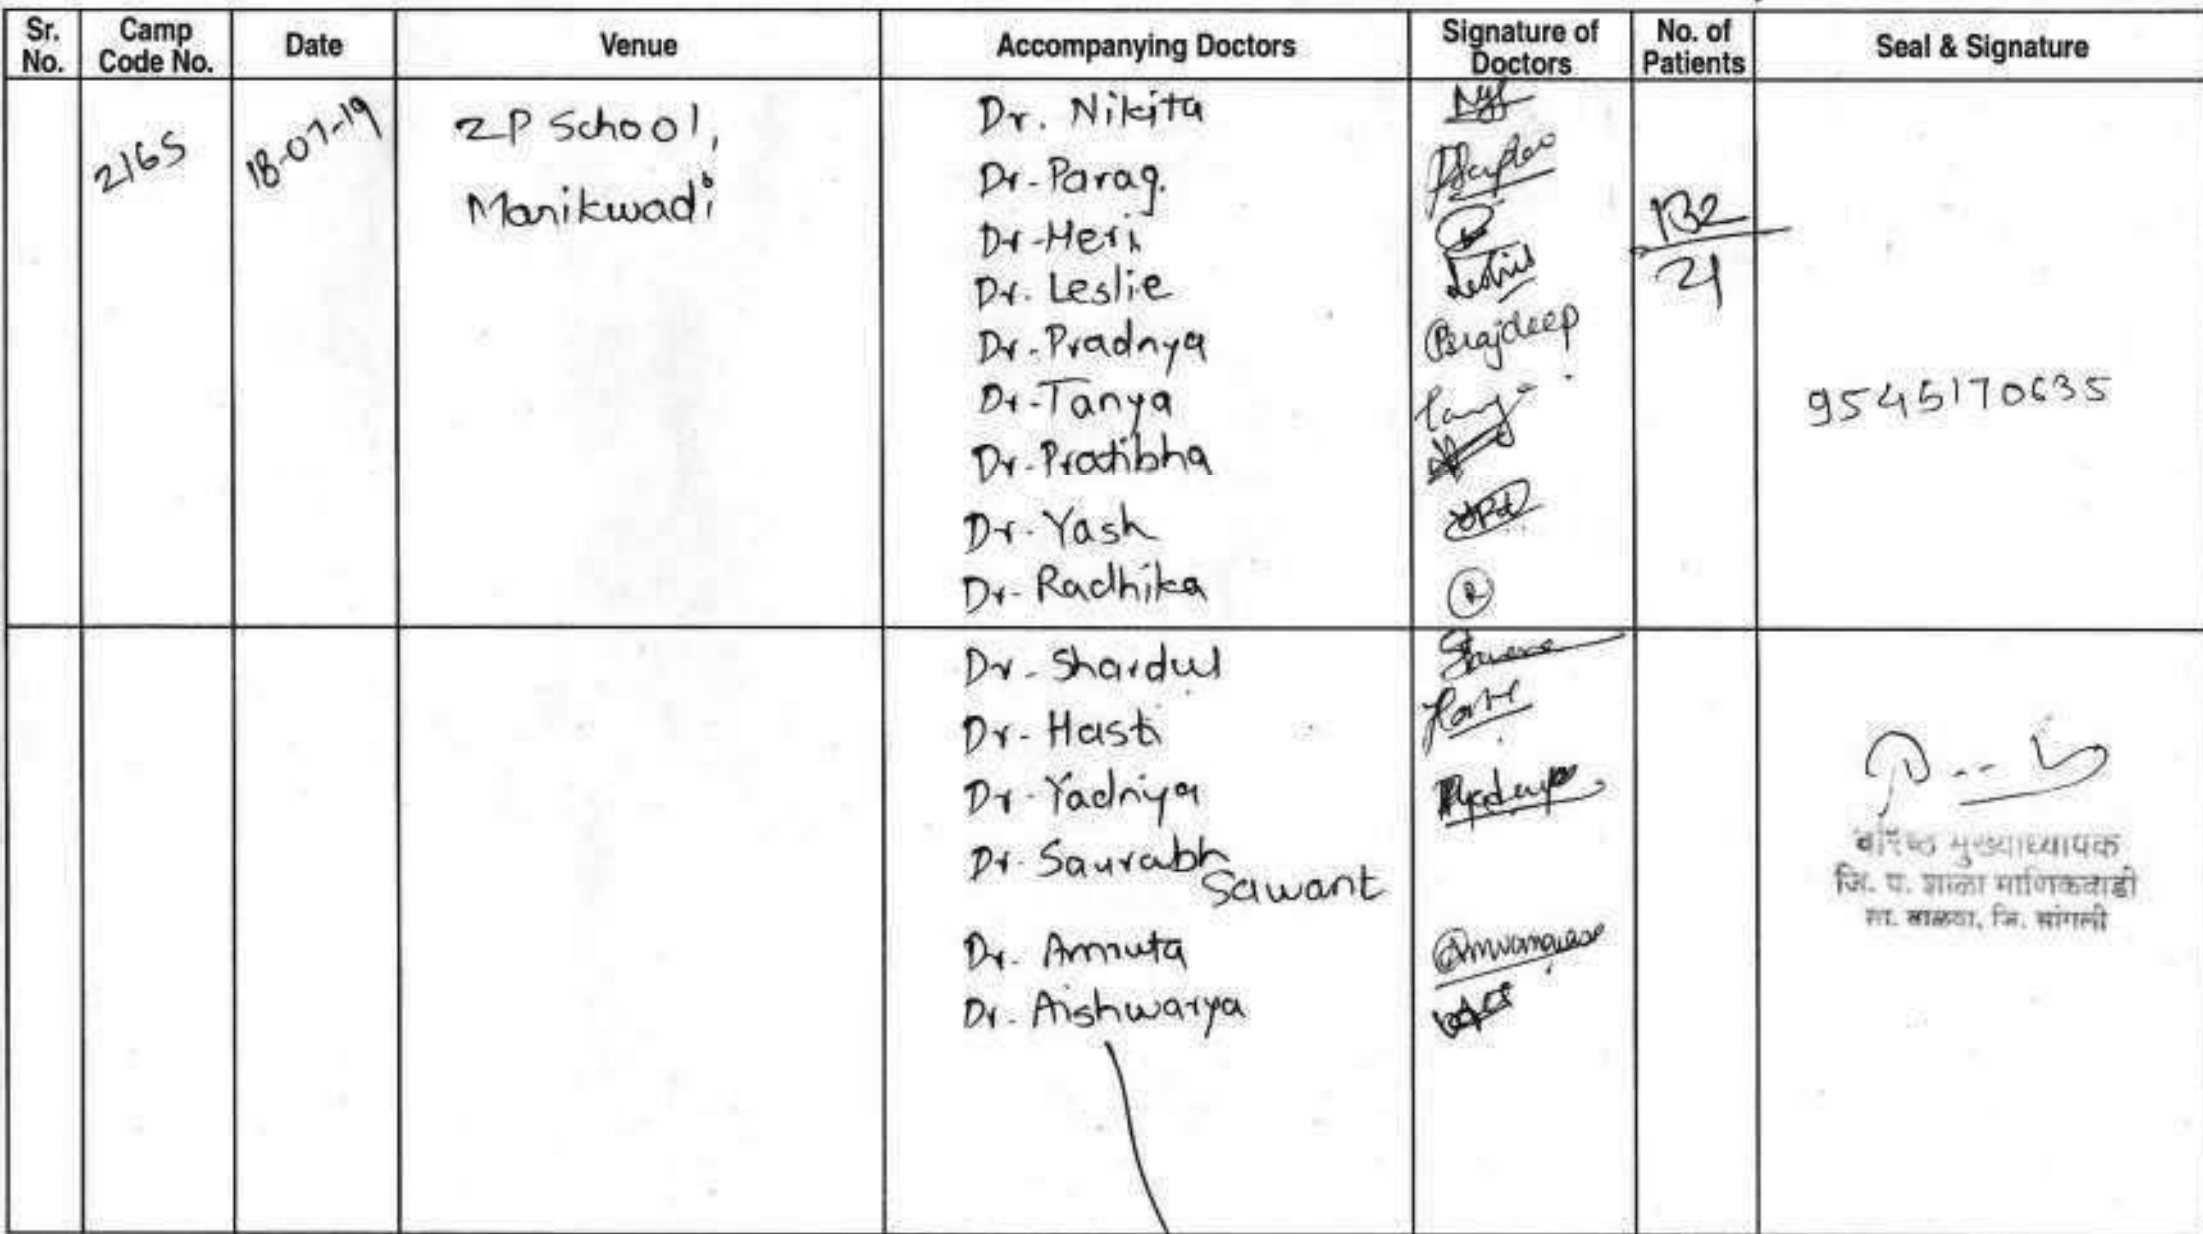 Sr. No. Camp Code No. Date Venue Accompanying Doctors Signature of Doctors No. of Patients Seal & Signature
2165 18-07-19 ZP School, Manikwadi
132
21
9545170635
Dr. Nikita
Dr. Parag.
Dr. Heri
Dr. Leslie
Dr. Pradnya
Dr. Tanya
Dr. Pratibha
Dr. Yash
Dr. Radhika
Dr. Shardul
Dr. Hasti
Dr. Yadnya
Dr. Saurabh Sawant
Dr. Amruta
Dr. Aishwarya
वरिष्ठ मुख्याध्यापक
जि. प. शाळा माणिकवाडी
ता. वाळवा, जि. सांगली